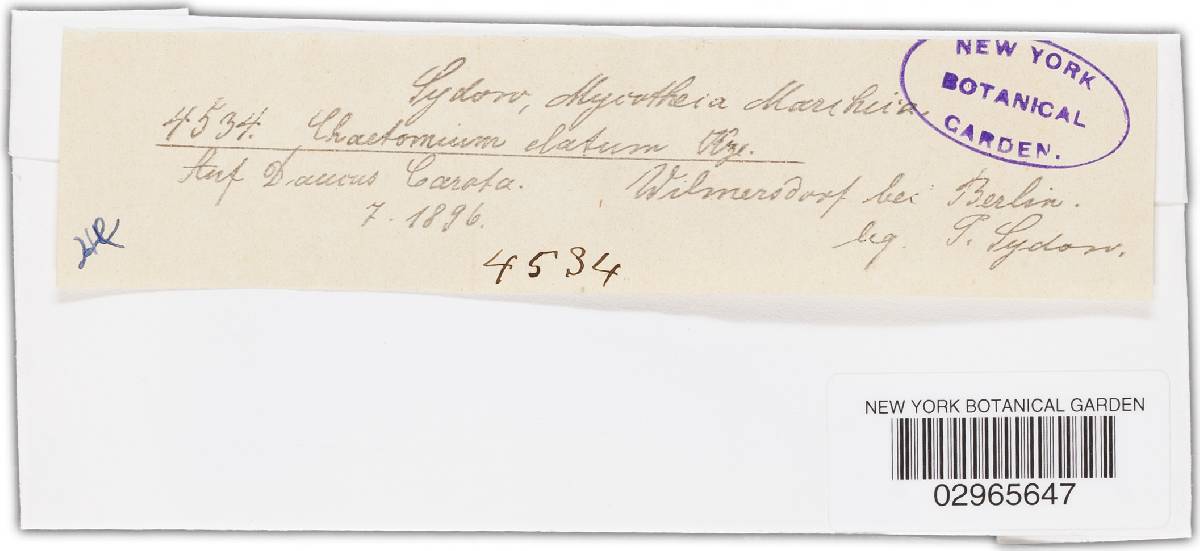 Sydow, Mycotheca Marchica.
NEW YORK
BOTANICAL
GARDEN.
4534. Chaetomium elatum Kze.
Auf Daucus Carota. Wilmersdorf bei Berlin.
7. 1896. leg. P. Sydow.
4534
NEW YORK BOTANICAL GARDEN
02965647